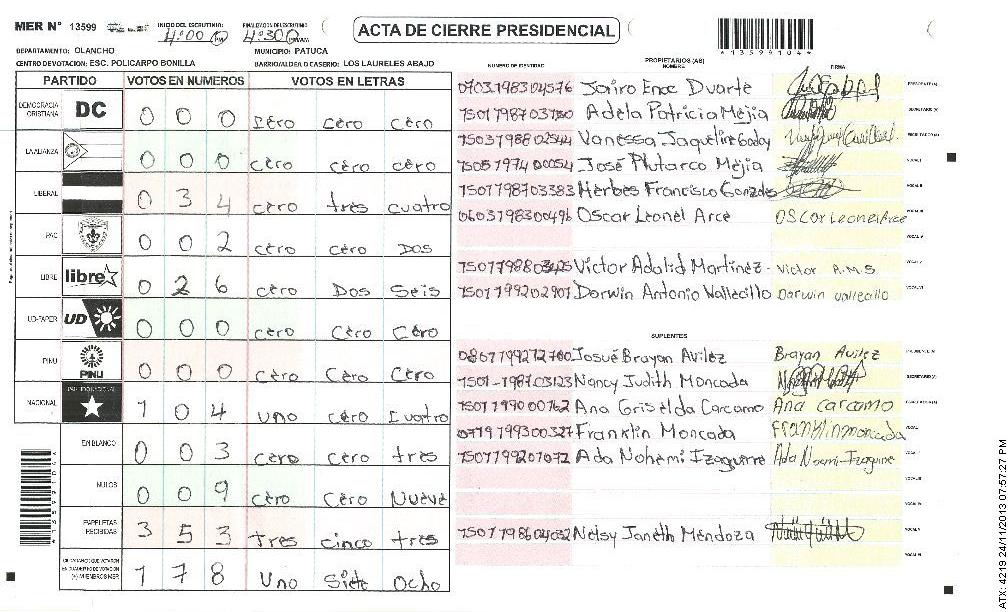 MER N° 13599 INICIO DEL ESCRUTINIO 4:00 PM FINALIZACION DEL ESCRUTINIO 4:30 PM/AM
ACTA DE CIERRE PRESIDENCIAL
*13599104*
DEPARTAMENTO: OLANCHO MUNICIPIO: PATUCA
CENTRO DE VOTACION: ESC. POLICARPO BONILLA BARRIO/ALDEA O CASERIO: LOS LAURELES ABAJO
PARTIDO VOTOS EN NUMEROS VOTOS EN LETRAS
DEMOCRACIA CRISTIANA DC 0 0 0 cero cero cero
LA ALIANZA 0 0 0 cero cero cero
LIBERAL 0 3 4 cero tres cuatro
PAC 0 0 2 cero cero Dos
LIBRE libre 0 2 6 cero Dos Seis
UD-FAPER UD 0 0 0 cero Cero Cero
PINU PINU 0 0 0 cero Cero Cero
NACIONAL PARTIDO NACIONAL 1 0 4 uno cero Cuatro
EN BLANCO 0 0 3 cero cero tres
NULOS 0 0 9 cero Cero Nueve
PAPELETAS RECIBIDAS 3 5 3 tres cinco tres
CIUDADANOS QUE VOTARON EN CUADERNO DE VOTACION (+) MIEMBROS MER 1 7 8 Uno Siete Ocho
*13599104*
PROPIETARIOS (AS)
NUMERO DE IDENTIDAD NOMBRE FIRMA
0703198304576 Jairo Enoc Duarte PRESIDENTE (A)
1501198703780 Adela Patricia Mejia SECRETARIO (A)
1503198802544 Vanessa Jaqueline Godoy ESCRUTADOR (A)
1505197400054 José Plutarco Mejia VOCAL I
1501198703383 Herbes Francisco Gonzales VOCAL II
0603198300496 Oscar Leonel Arce OSCar Leonel Arce VOCAL III
VOCAL IV
1501198803425 Victor Adalid Martinez - Victor A.M.S. VOCAL V
1501199202901 Darwin Antonio Vallecillo Darwin vallecillo VOCAL VI
SUPLENTES
0801199212760 Josué Brayan Avilez Brayan Avilez PRESIDENTE (A)
1501-198703123 Nancy Judith Moncada SECRETARIO (A)
1501199000762 Ana Griselda Carcamo Ana carcamo ESCRUTADOR (A)
0719199300327 Franklin Moncada Franklin moncada VOCAL I
1501199201072 Ada Nohemi Izaguirre Ada Noemi Izaguirre VOCAL II
VOCAL III
VOCAL IV
1501198604032 Nelsy Janeth Mendoza VOCAL V
VOCAL VI
ATX: 4219 24/11/2013 07:57:27 PM